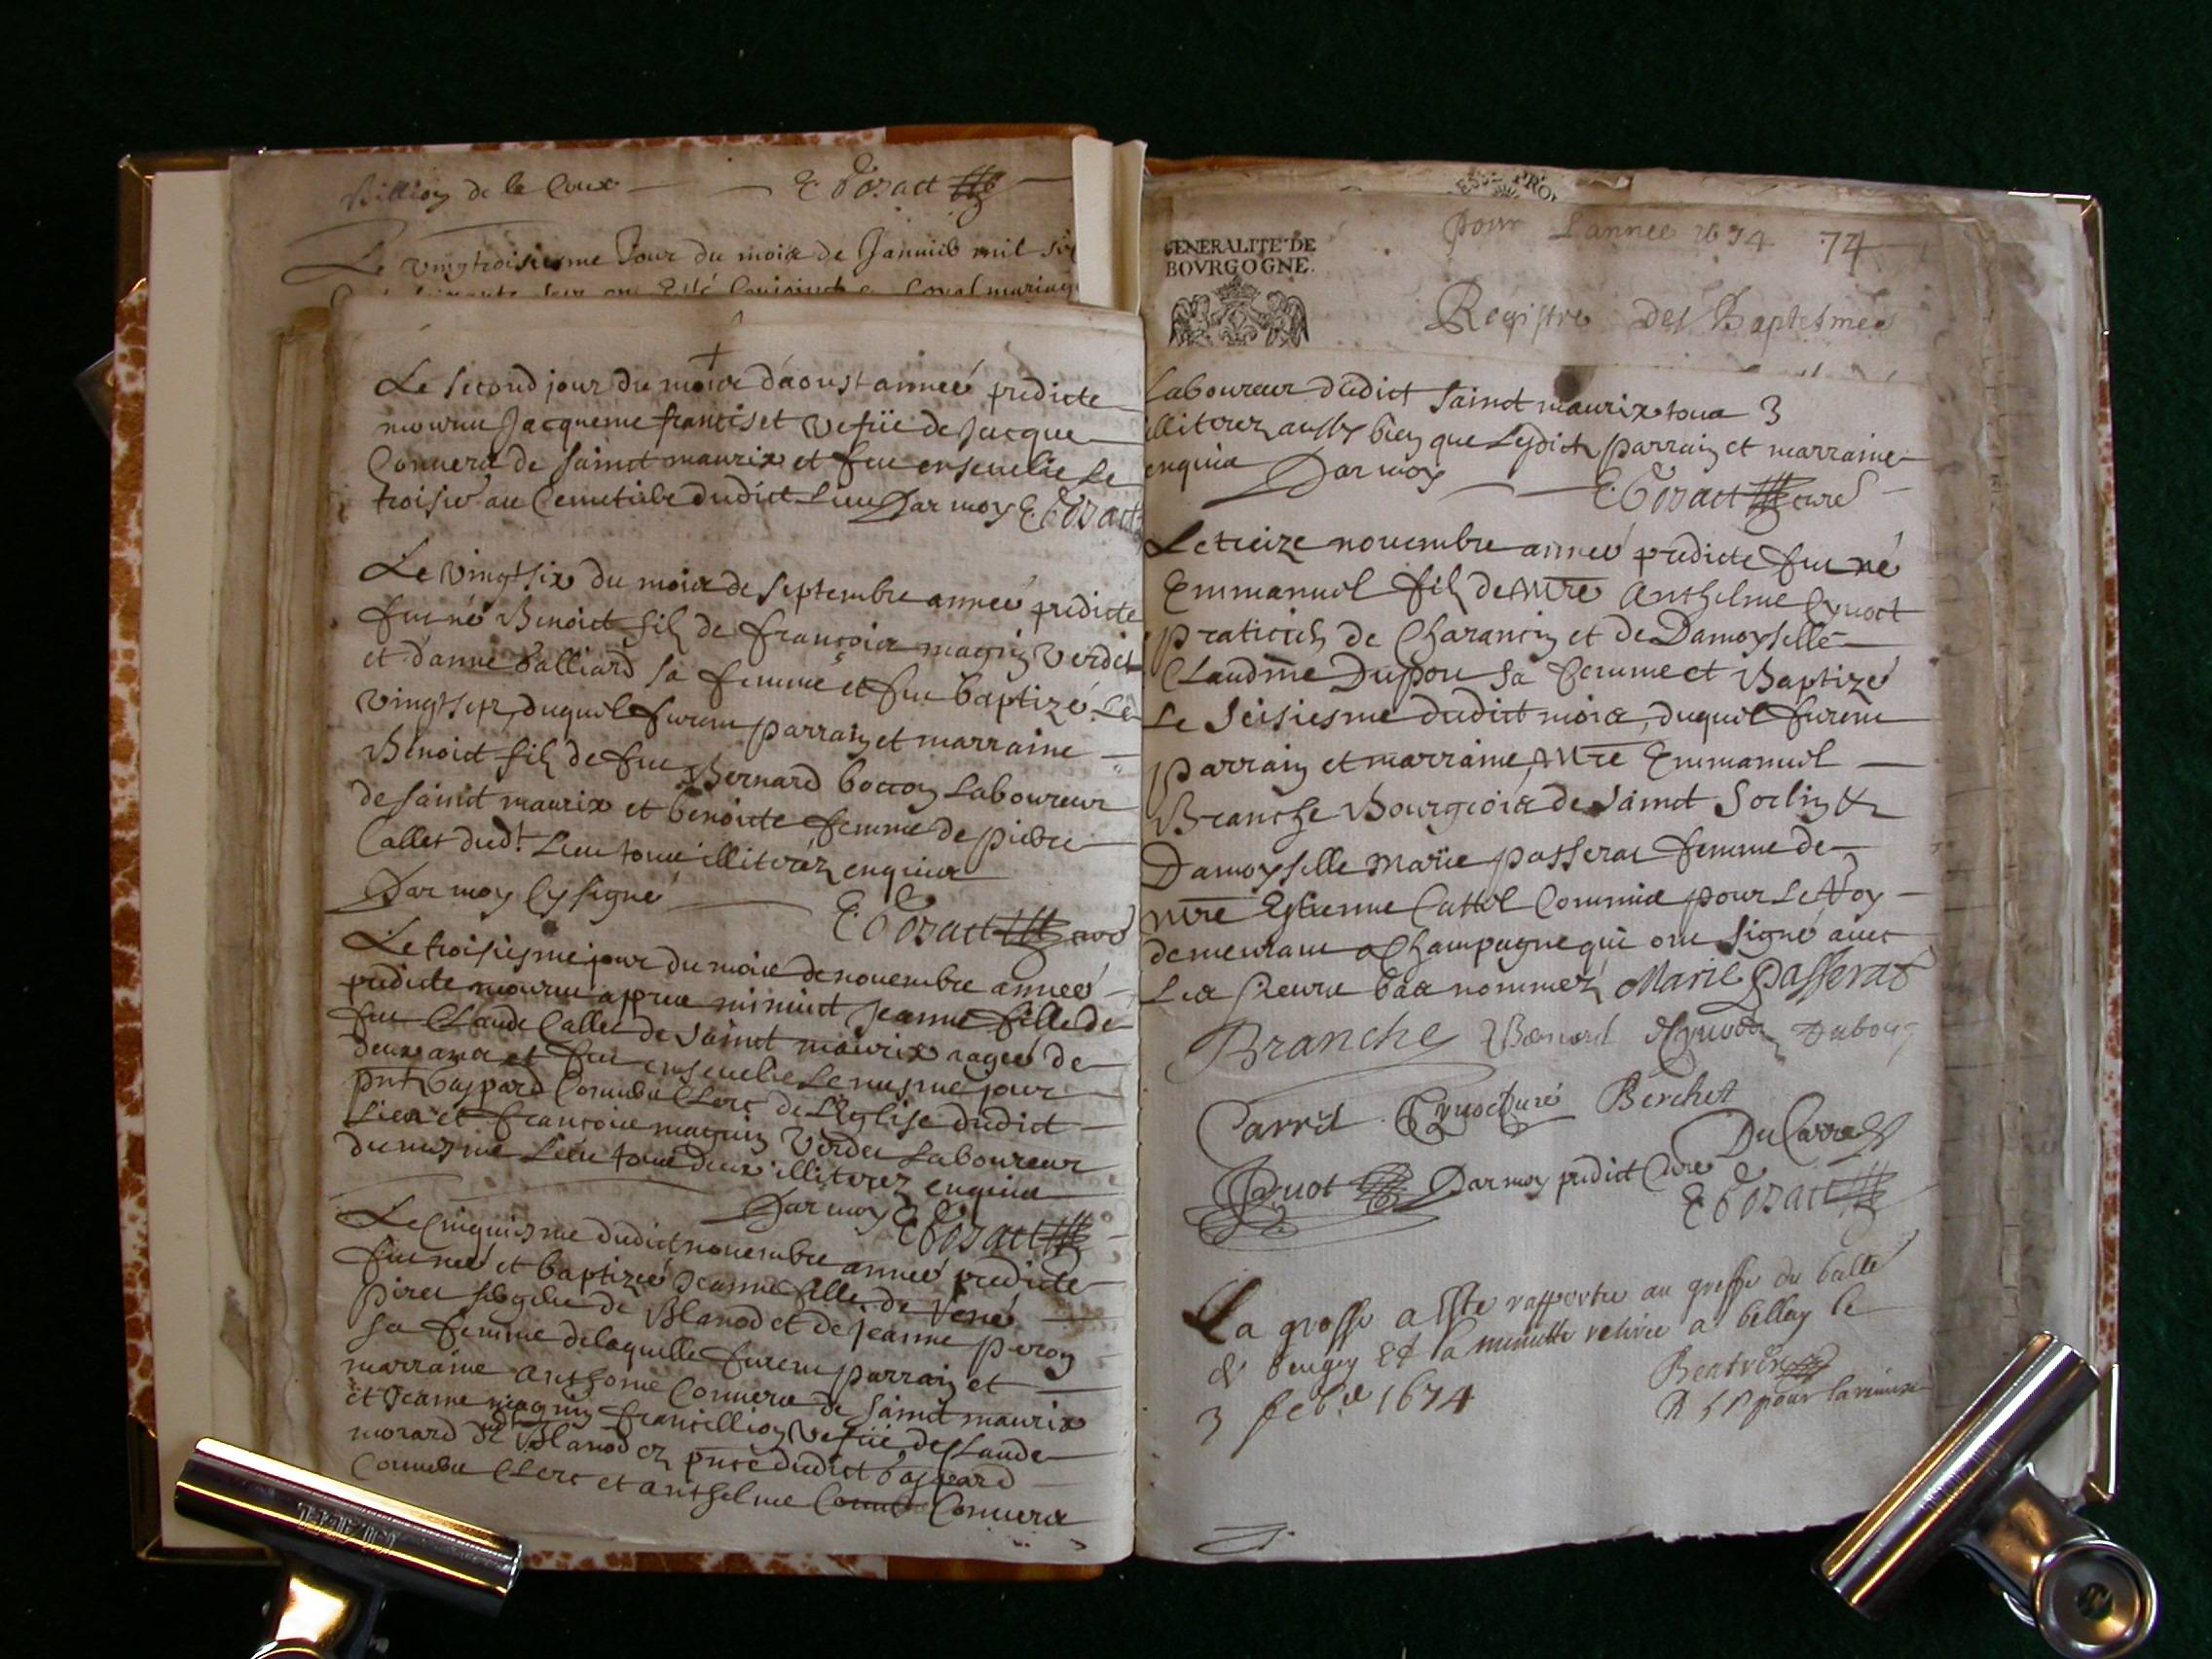 Billion de la Coux E. Cozact
Le vingtroisiesme Jour du mois de Janvier mil six
Le second jour du mois d'aoust anneé predicte
mourut Jacqueme franciset vefüe de Jacque
Conuers de sainct maurix et fut enseuelie le
troisie' au Cemetiere dudict Lieu Par moy E. Cozact
Le vingtsix du mois de septembre anneé predicte
fut né Benoict filz de françois magnin Verdet
et d'anne balliard sa femme et fut baptizé. Le
vingtsept, duquel furent parrain et marraine
Benoict filz de feu Bernard boccon Laboureur
de sainct maurix et benoicte femme de pierre
Callet dud.t Lieu tous illiterez enquis
Par moy Cy signé
E. Cozact curé
Le troisiesme jour du mois de nouembre anneé
predicte mourut appres minuict Jeanne fille de
feu Claude Callet de sainct maurix aageé de
deux ans et fut enseuelie le mesme jour
pnt gaspard Conuers Clerc de L'Eglise dudict
Lieu et françois magnin Verdet Laboureur
du mesme Lieu tous deux illiterez enquis
Par moy E Cozact
Le Cinquiesme dudict nouembre anneé predicte
fut neé et baptizeé Jeanne fille de René
piret de Blanod et de Jeanne peron
sa femme de laquelle furent parrain et
marraine Anthome Conuers de sainct maurix
et Jeanne magnin francillion vefüe de Claude
morard de Blanod en pnce dudict gaspard
Conuers Clerc et anthelme Conuers
GENERALITE DE
BOVRGOGNE.
pour L'annee 1674 74
Registre des Baptesmes
Laboureur dudict sainct maurix tous 3
illiterez aussy bien que lesdict parrain et marraine
enquis Par moy
E. Cozact curé
Le treize nouembre anneé predicte fut né
Emmanuel filz de Mre Anthelme Quoct
praticien de Charancin et de Damoyselle
Claudine Dupon sa femme et Baptizé
Le seisiesme dudict mois, duquel furent
parrain et marraine, Mre Emmanuel
Branche Bourgeois de sainct Sorlin &
Damoyselle Marie passerat femme de
Mre Estienne Cattel Commis pour Le Roy
demeurant a Champagne qui ont signé auec
Les sieurs bas nommez Marie Passerat
Branche Bernard
Carrel Quoct curé Berchet
Du Carre
Quot Par moy predict Curé
E Cozact
La grosse a Este rapportee au greffe du balle
de beugey Et la minutte retiree a belley le
3 feb.e 1674
R 5 s pour la minute